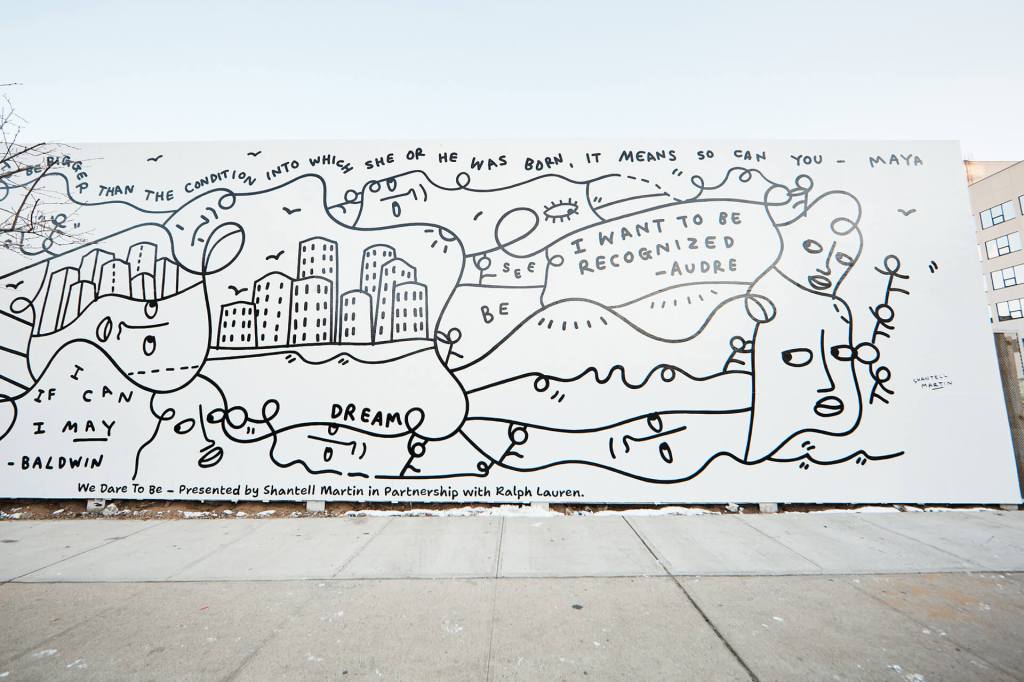 BE BIGGER THAN THE CONDITION INTO WHICH SHE OR HE WAS BORN, IT MEANS SO CAN YOU - MAYA
I WANT TO BE
RECOGNIZED
-AUDRE
SEE
BE
I
IF CAN
I MAY
-BALDWIN
DREAM
SHANTELL
MARTIN
We Dare To Be – Presented by Shantell Martin in Partnership with Ralph Lauren.